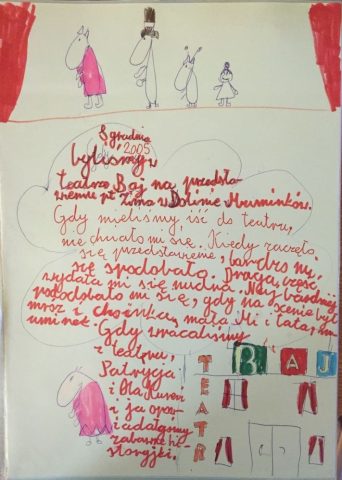 8 grudnia
2005
byliśmy w
teatrze Baj na przedsta-
wienie pt Zima w Dolinie Muminków.
Gdy mieliśmy iść do teatru,
nie chciało mi się. Kiedy zaczęło
się przedstawienie, bardzo mi
się spodobało. Druga część
wydała mi się nudna. Naj bardziej
podobało mi się, gdy na scenie był
mróz i choinka, mała Mi i
uminek.
Gdy wracaliśmy
z teatru,
Patrycja
i Ola
i ja opo-
wiadałyśmy
zabawne hi-
storyjki.
TEATR
BAJ